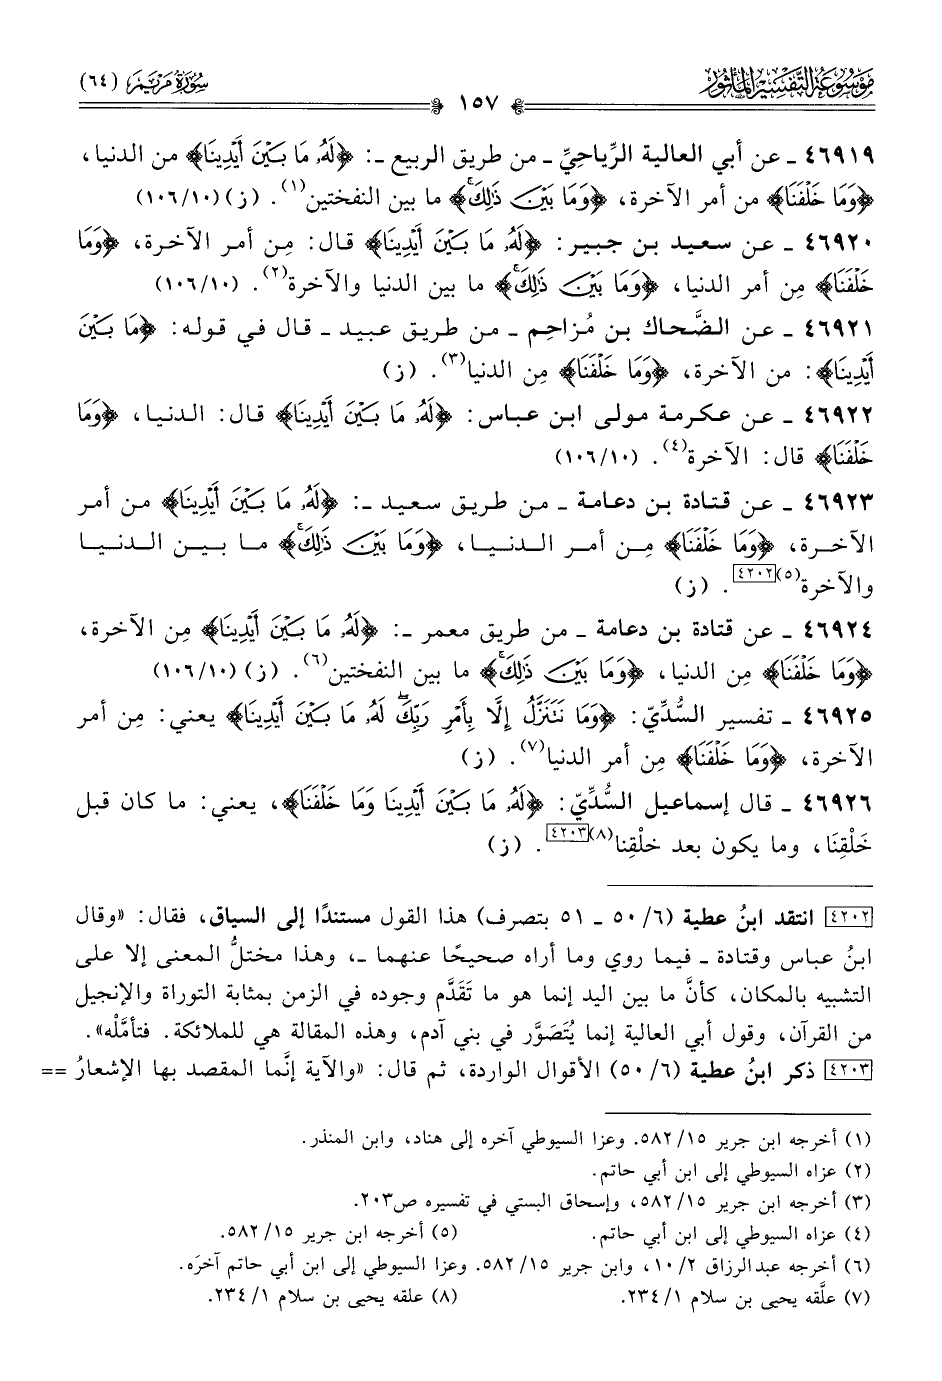 موسوعة التفسير المأثور
سورة مريم (٦٤)
١٥٧
٤٦٩١٩ ـ عن أبي العالية الرِّياحيِّ ـ من طريق الربيع ـ: ﴿لَهُۥ مَا بَيْنَ أَيْدِينَا﴾ من الدنيا،
﴿وَمَا خَلْفَنَا﴾ من أمر الآخرة، ﴿وَمَا بَيْنَ ذَٰلِكَۚ﴾ ما بين النفختين(١). (ز) (١٠٦/١٠)
٤٦٩٢٠ ـ عن سعيد بن جبير: ﴿لَهُۥ مَا بَيْنَ أَيْدِينَا﴾ قال: مِن أمر الآخرة، ﴿وَمَا
خَلْفَنَا﴾ مِن أمر الدنيا، ﴿وَمَا بَيْنَ ذَٰلِكَۚ﴾ ما بين الدنيا والآخرة(٢). (١٠٦/١٠)
٤٦٩٢١ ـ عن الضَّحاك بن مُزاحِم ـ من طريق عبيد ـ قال في قوله: ﴿مَا بَيْنَ
أَيْدِينَا﴾: من الآخرة، ﴿وَمَا خَلْفَنَا﴾ مِن الدنيا(٣). (ز)
٤٦٩٢٢ ـ عن عكرمة مولى ابن عباس: ﴿لَهُۥ مَا بَيْنَ أَيْدِينَا﴾ قال: الدنيا، ﴿وَمَا
خَلْفَنَا﴾ قال: الآخرة(٤). (١٠٦/١٠)
٤٦٩٢٣ ـ عن قتادة بن دعامة ـ من طريق سعيد ـ: ﴿لَهُۥ مَا بَيْنَ أَيْدِينَا﴾ من أمر
الآخرة، ﴿وَمَا خَلْفَنَا﴾ مِن أمر الدنيا، ﴿وَمَا بَيْنَ ذَٰلِكَۚ﴾ ما بين الدنيا
والآخرة(٥)[٤٢٠٢]. (ز)
٤٦٩٢٤ ـ عن قتادة بن دعامة ـ من طريق معمر ـ: ﴿لَهُۥ مَا بَيْنَ أَيْدِينَا﴾ مِن الآخرة،
﴿وَمَا خَلْفَنَا﴾ مِن الدنيا، ﴿وَمَا بَيْنَ ذَٰلِكَۚ﴾ ما بين النفختين(٦). (ز) (١٠٦/١٠)
٤٦٩٢٥ ـ تفسير السُّدِّيّ: ﴿وَمَا نَتَنَزَّلُ إِلَّا بِأَمْرِ رَبِّكَۖ لَهُۥ مَا بَيْنَ أَيْدِينَا﴾ يعني: مِن أمر
الآخرة، ﴿وَمَا خَلْفَنَا﴾ مِن أمر الدنيا(٧). (ز)
٤٦٩٢٦ ـ قال إسماعيل السُّدِّيّ: ﴿لَهُۥ مَا بَيْنَ أَيْدِينَا وَمَا خَلْفَنَا﴾، يعني: ما كان قبل
خَلْقِنَا، وما يكون بعد خلْقِنا(٨)[٤٢٠٣]. (ز)
[٤٢٠٢] انتقد ابنُ عطية (٦/ ٥٠ ـ ٥١ بتصرف) هذا القول مستندًا إلى السياق، فقال: «وقال
ابنُ عباس وقتادة ـ فيما روي وما أراه صحيحًا عنهما ـ، وهذا مختلُّ المعنى إلا على
التشبيه بالمكان، كأنَّ ما بين اليد إنما هو ما تَقَدَّم وجوده في الزمن بمثابة التوراة والإنجيل
من القرآن، وقول أبي العالية إنما يُتَصَوَّر في بني آدم، وهذه المقالة هي للملائكة. فتأمَّلْه».
[٤٢٠٣] ذكر ابنُ عطية (٦/ ٥٠) الأقوال الواردة، ثم قال: «والآية إنَّما المقصد بها الإشعارُ ==
(١) أخرجه ابن جرير ١٥/ ٥٨٢. وعزا السيوطي آخره إلى هناد، وابن المنذر.
(٢) عزاه السيوطي إلى ابن أبي حاتم.
(٣) أخرجه ابن جرير ١٥/ ٥٨٢، وإسحاق البستي في تفسيره ص٢٠٣.
(٤) عزاه السيوطي إلى ابن أبي حاتم. (٥) أخرجه ابن جرير ١٥/ ٥٨٢.
(٦) أخرجه عبدالرزاق ٢/ ١٠، وابن جرير ١٥/ ٥٨٢. وعزا السيوطي إلى ابن أبي حاتم آخرَه.
(٧) علَّقه يحيى بن سلام ١/ ٢٣٤. (٨) علقه يحيى بن سلام ١/ ٢٣٤.